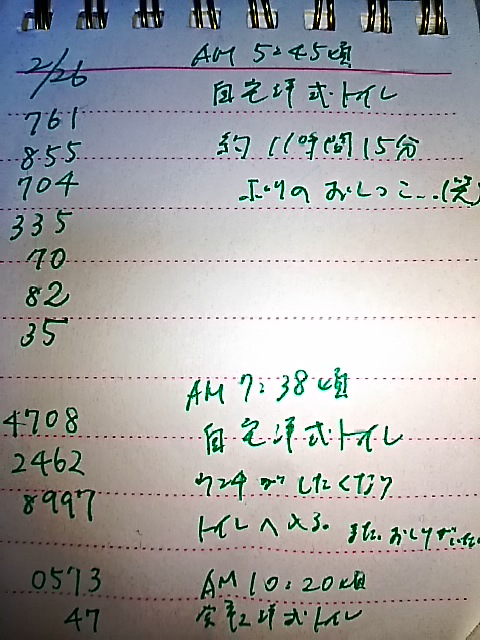 2/26
AM 5:45頃
自宅洋式トイレ
761
855
約11時間15分
704
ぶりのおしっこ...(笑)
335
70
82
35
AM 7:38頃
4708
自宅洋式トイレ
2462
ウンチがしたくなり
8997
トイレへ入る。また、おしりがいたい
0573
AM 10:20頃
47
洋式トイレ